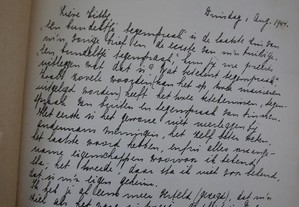 Dinsdag, 1 Aug. 1944.
Lieve Kitty,
"Een bundeltje tegenspraak" is de laatste zin van
m'n vorige brief en de eerste van m'n huidige.
"Een bundeltje tegenspraak", kun je me precies
uitleggen wat dat is? Wat betekent tegenspraak?
Zoals zovele woorden kan het op twee manieren
uitgelegd worden, het hele
tegenspraak van buiten en tegenspraak van binnen.
Het eerste is het gewone niet neerleggen bij
andermans meningen, het zelf beter weten,
het laatste woord hebben, enfin alles
eigenschappen waarvoor ik bekend
sta, het tweede, daar sta ik niet voor bekend,
dat is m'n eigen geheim.
Ik heb je al eens meer verteld dat m'n